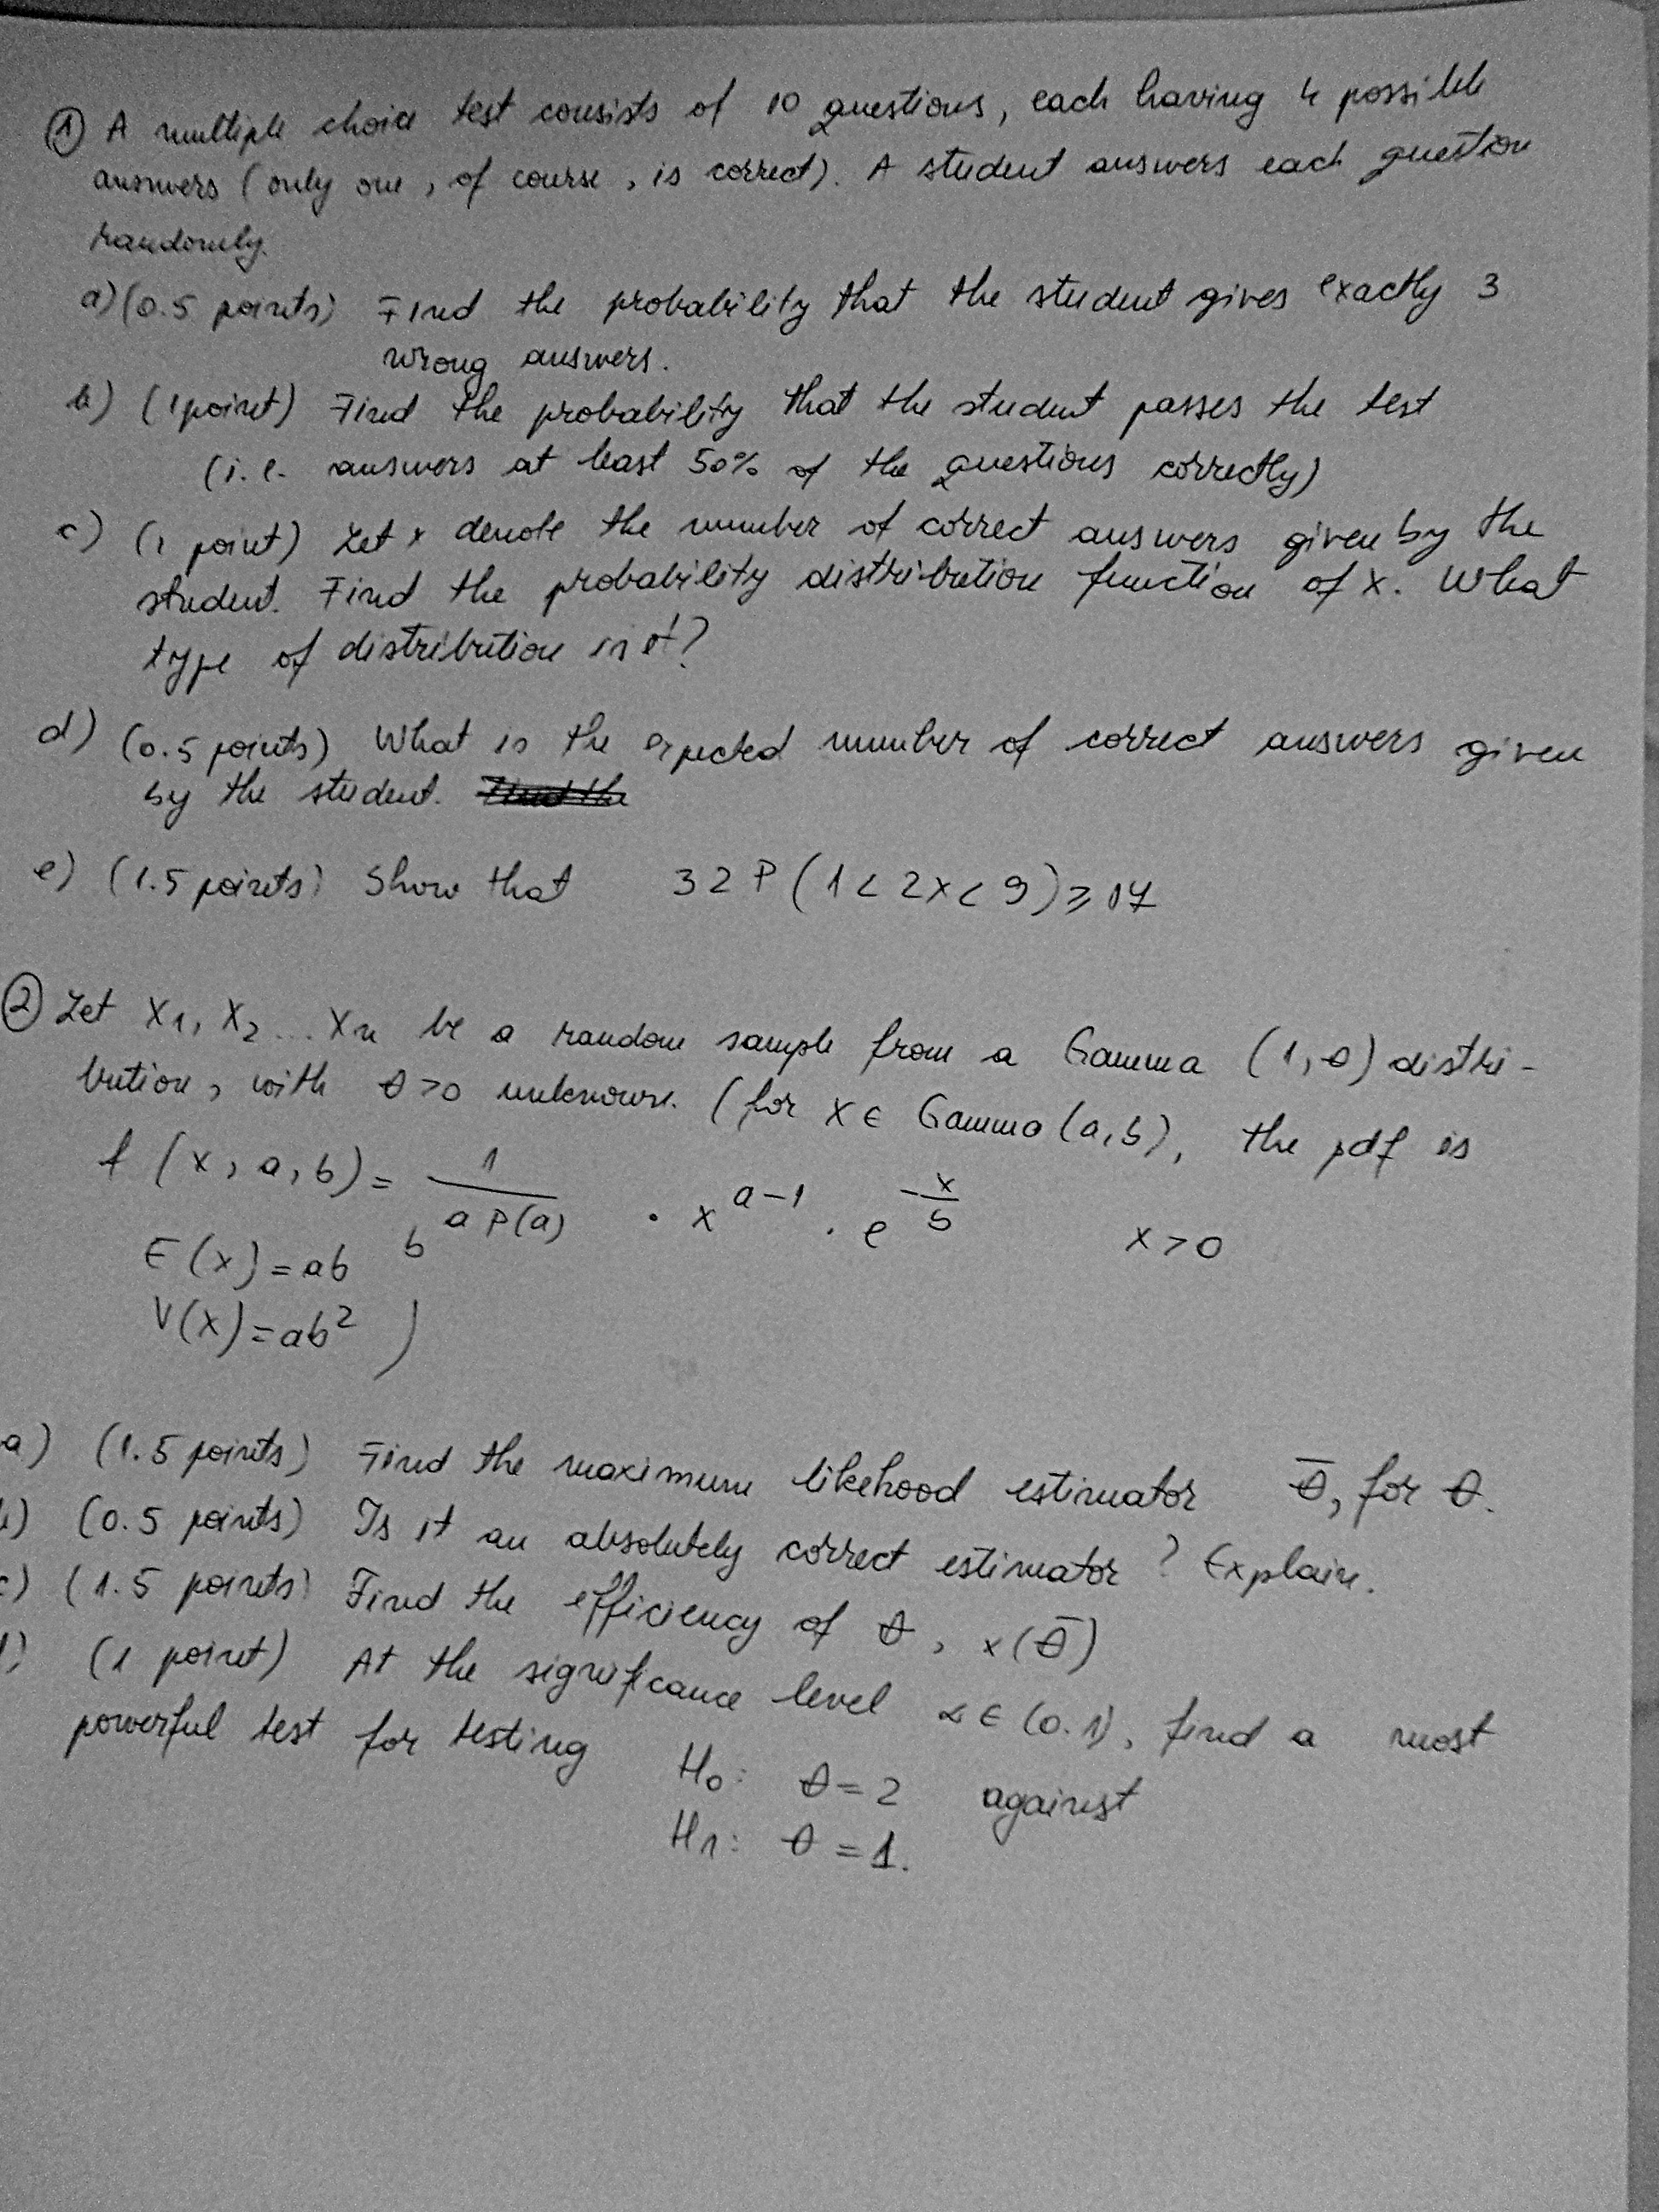 ① A multiple choice test consists of 10 questions, each having 4 possible
answers (only one, of course, is correct). A student answers each question
randomly.
a) (0.5 points) Find the probability that the student gives exactly 3
wrong answers.
b) (1 point) Find the probability that the student passes the test
(i.e. answers at least 50% of the questions correctly)
c) (1 point) Let x denote the number of correct answers given by the
student. Find the probability distribution function of x. What
type of distribution is it?
d) (0.5 points) What is the expected number of correct answers given
by the student.
e) (1.5 points) Show that 32 P(1 < 2x < 9) ≥ 17
② Let X1, X2 ... Xn be a random sample from a Gamma (1, θ) distri-
bution, with θ > 0 unknown. (for X ∈ Gamma (a, b), the pdf is
f (x, a, b) = 1 / b^a Γ(a) · x^a-1 · e^-x/b x > 0
E(x) = ab
V(x) = ab²)
a) (1.5 points) Find the maximum likehood estimator θ̄, for θ.
b) (0.5 points) Is it an absolutely correct estimator? Explain.
c) (1.5 points) Find the efficiency of θ, x(θ̄)
d) (1 point) At the significance level α ∈ (0.1), find a most
powerful test for testing H0: θ = 2 against
H1: θ = 1.